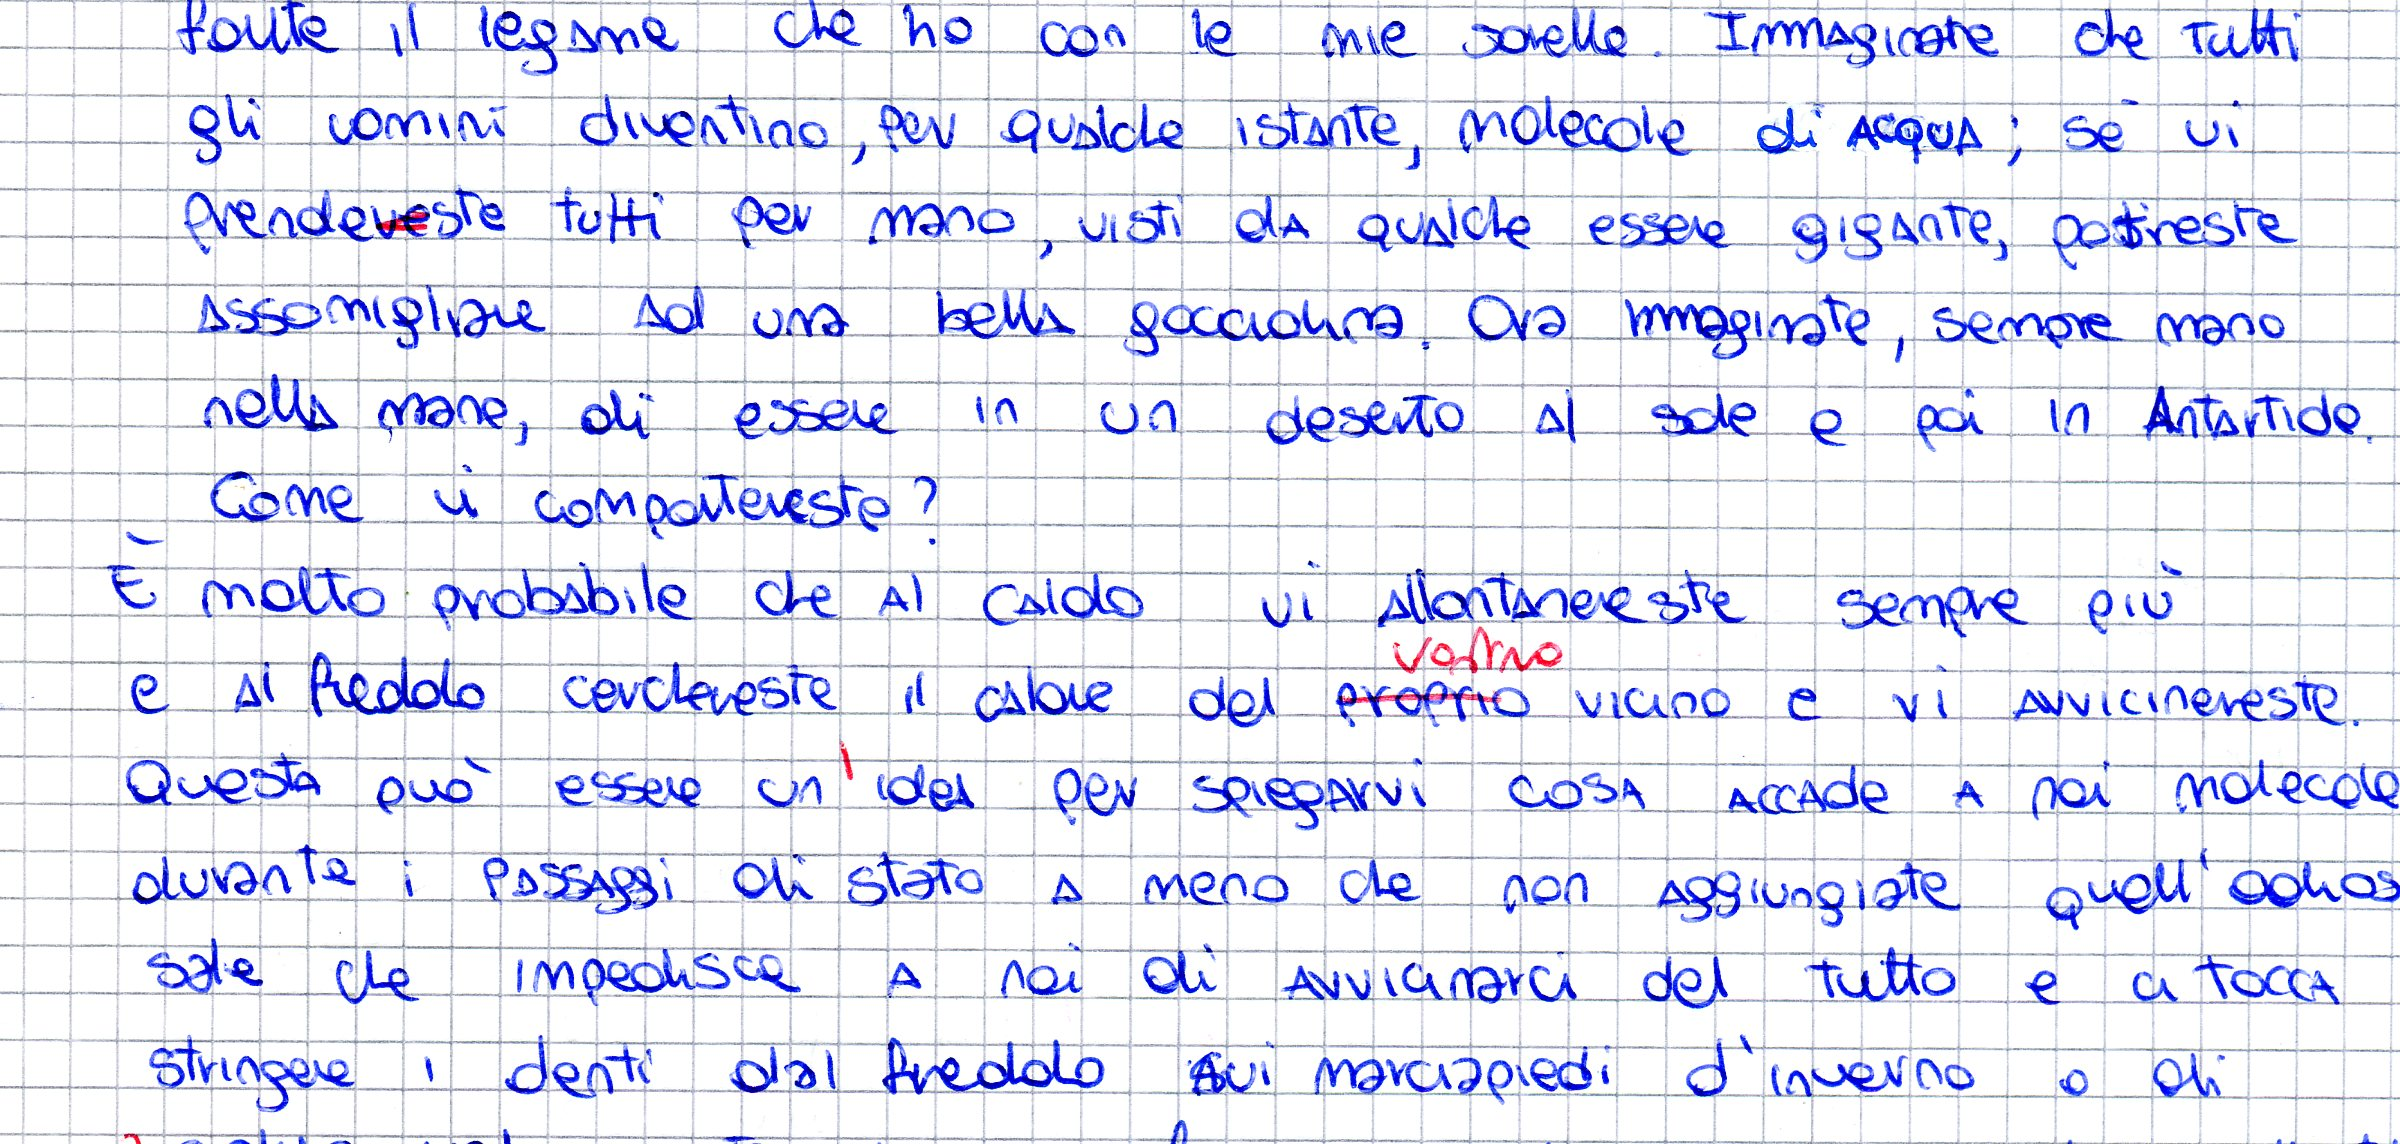 forte il legame che ho con le mie sorelle. Immaginate che tutti
gli uomini diventino, per qualche istante, molecole di ACQUA; se vi
prendeveste tutti per mano, visti da qualche essere gigante, potreste
assomigliare ad una bella gocciolina. Ora immaginate, sempre mano
nella mano, di essere in un deserto al sole e poi in Antartide.
Come vi comportereste?
È molto probabile che al caldo vi allontanereste sempre più
vostro
e al freddo cerchereste il calore del proprio vicino e vi avvicinereste.
Questa può essere un'idea per spiegarvi cosa accade a noi molecole
durante i passaggi di stato a meno che non aggiungiate quell'odios
sale che impedisce a noi di avvicinarci del tutto e ci tocca
stringere i denti dal freddo sui marciapiedi d'inverno o di